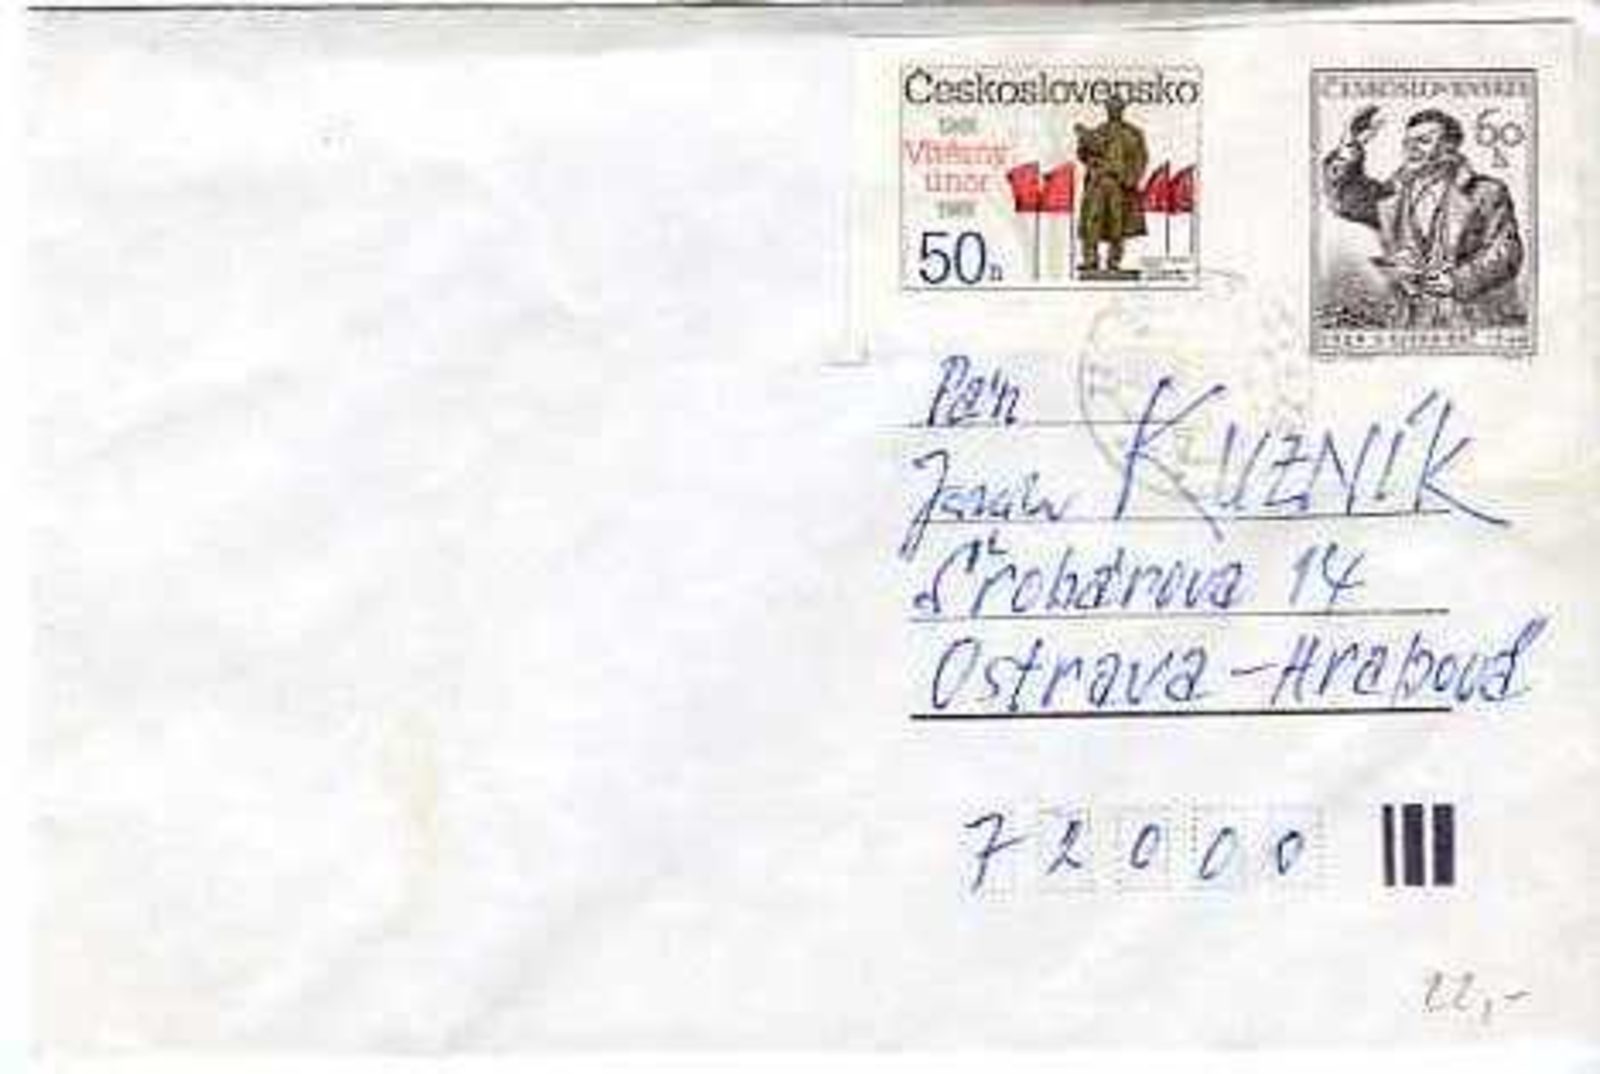 Československo
Vítězný
únor
50h
ČESKOSLOVENSKO
60
h
Pán
KUZNÍK
Šrobárova 14
Ostrava-Hrabová
7 2 0 0 0
22,-